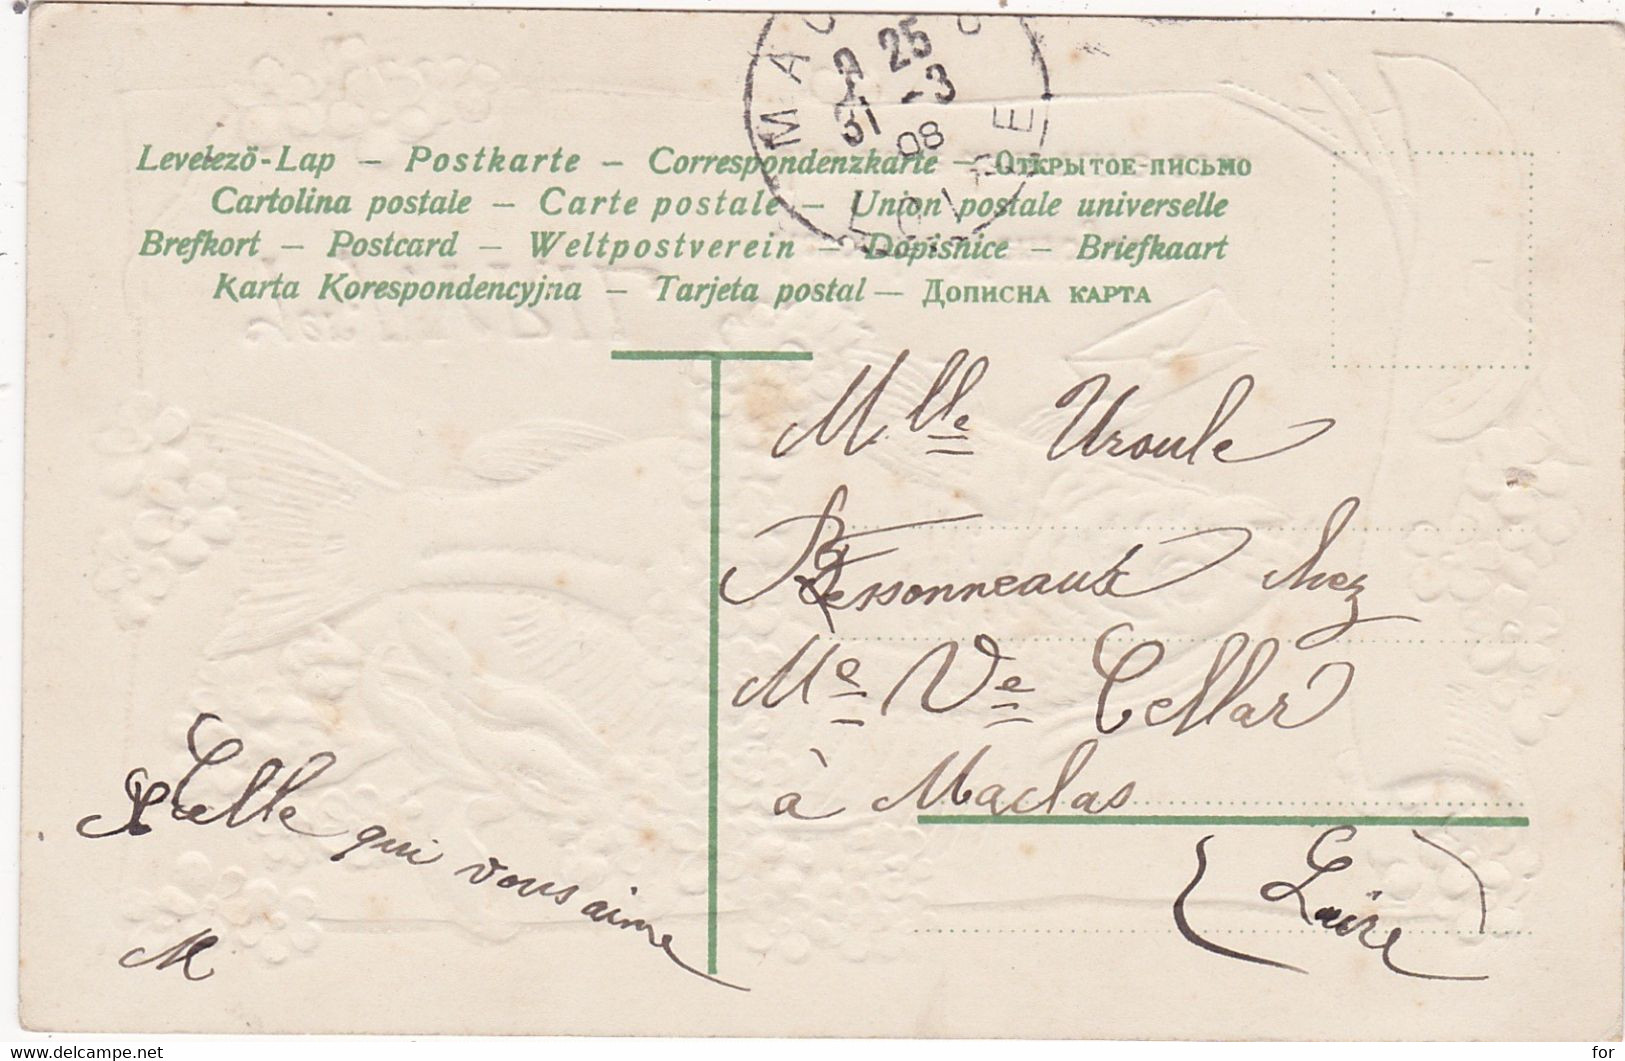 MAC
25
31 -3
08
LOIRE
Levelező-Lap – Postkarte – Correspondenzkarte – Открытое-письмо
Cartolina postale – Carte postale – Union postale universelle
Brefkort – Postcard – Weltpostverein – Dopisnice – Briefkaart
Karta Korespondencyjna – Tarjeta postal – Дописна карта
Mlle Ursule
Bessonneaux chez
Me Ve Cellar
à Maclas
(Loire)
Celle qui vous aime
M
for